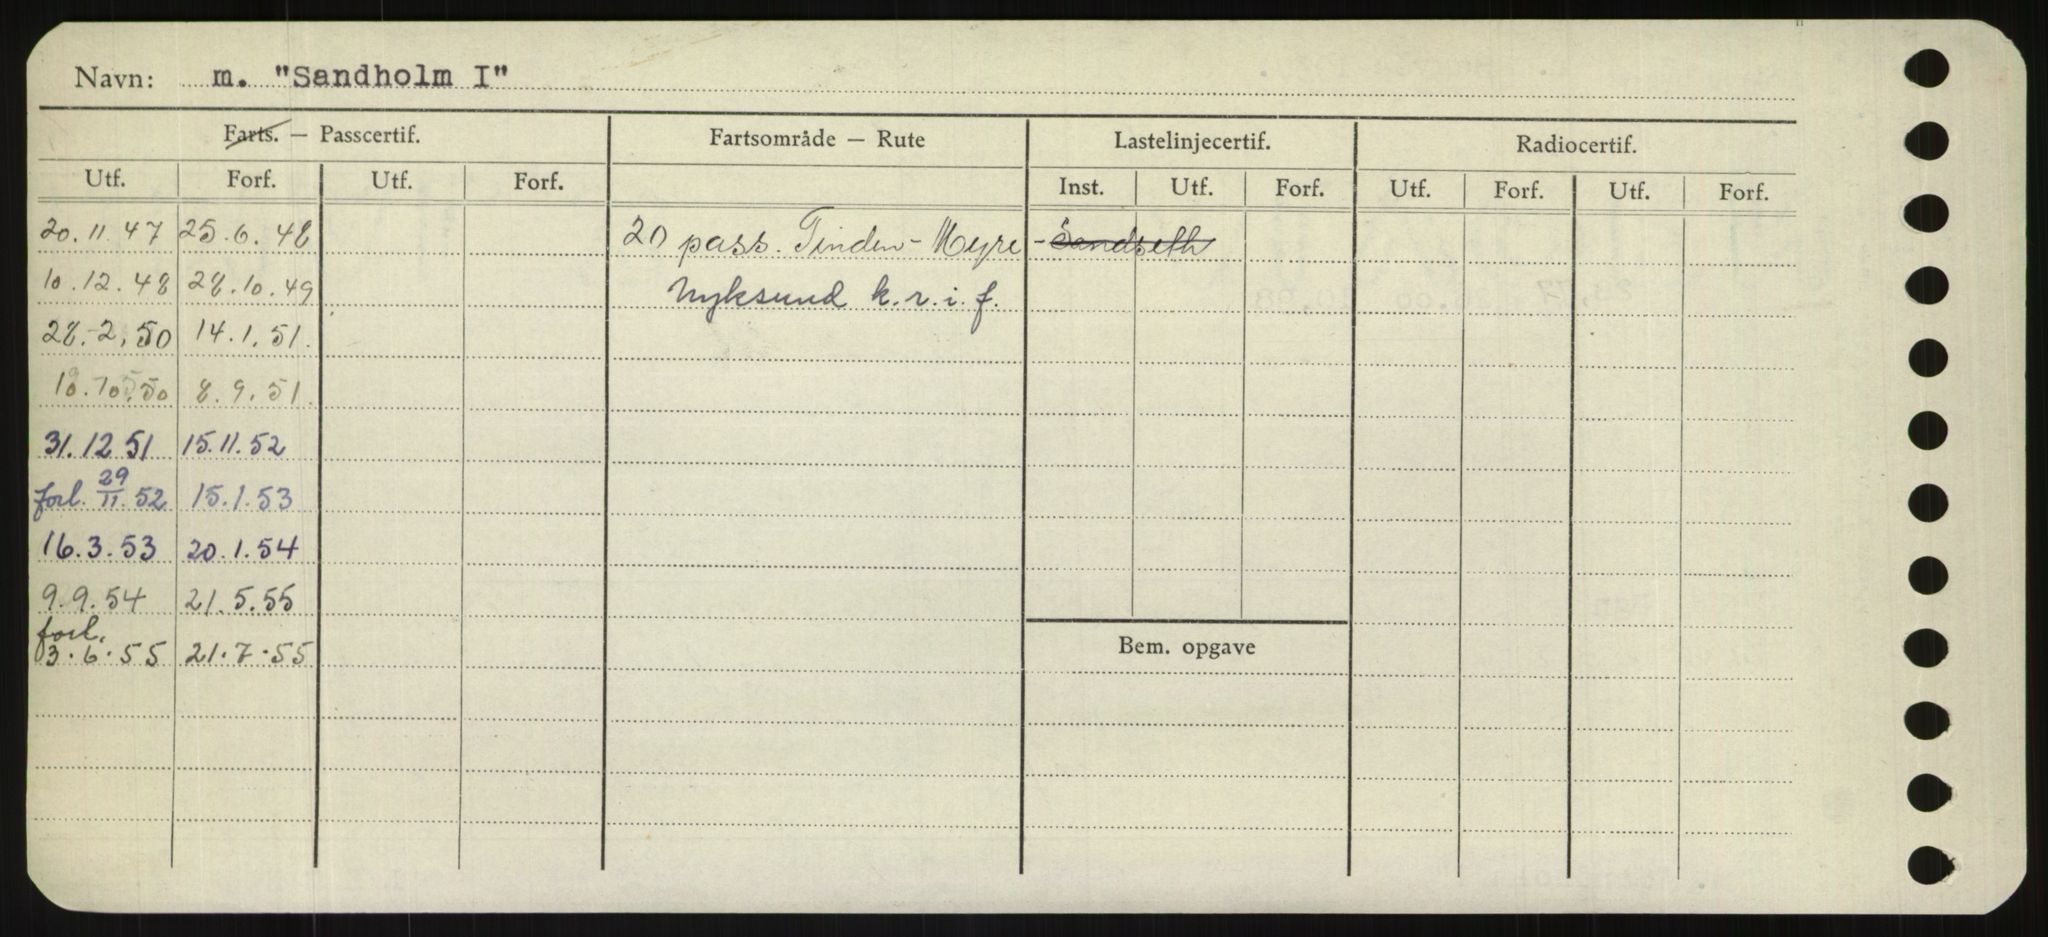 Navn: m. "Sandholm I"
Farts. — Passcertif. Fartsområde — Rute Lastelinjecertif. Radiocertif.
Utf. Forf. Utf. Forf. Inst. Utf. Forf. Utf. Forf. Utf. Forf.
20.11.47 25.6.48 20 pass. Tinden - Myre - Sandseth
10.12.48 28.10.49 Nyksund k.r.i.f.
28.2.50 14.1.51.
10.10.50 8.9.51.
31.12 51 15.11.52
forl. 29/11.52 15.1.53
16.3.53 20.1.54
9.9.54 21.5.55
forl.
3.6.55 21.7.55
Bem. opgave